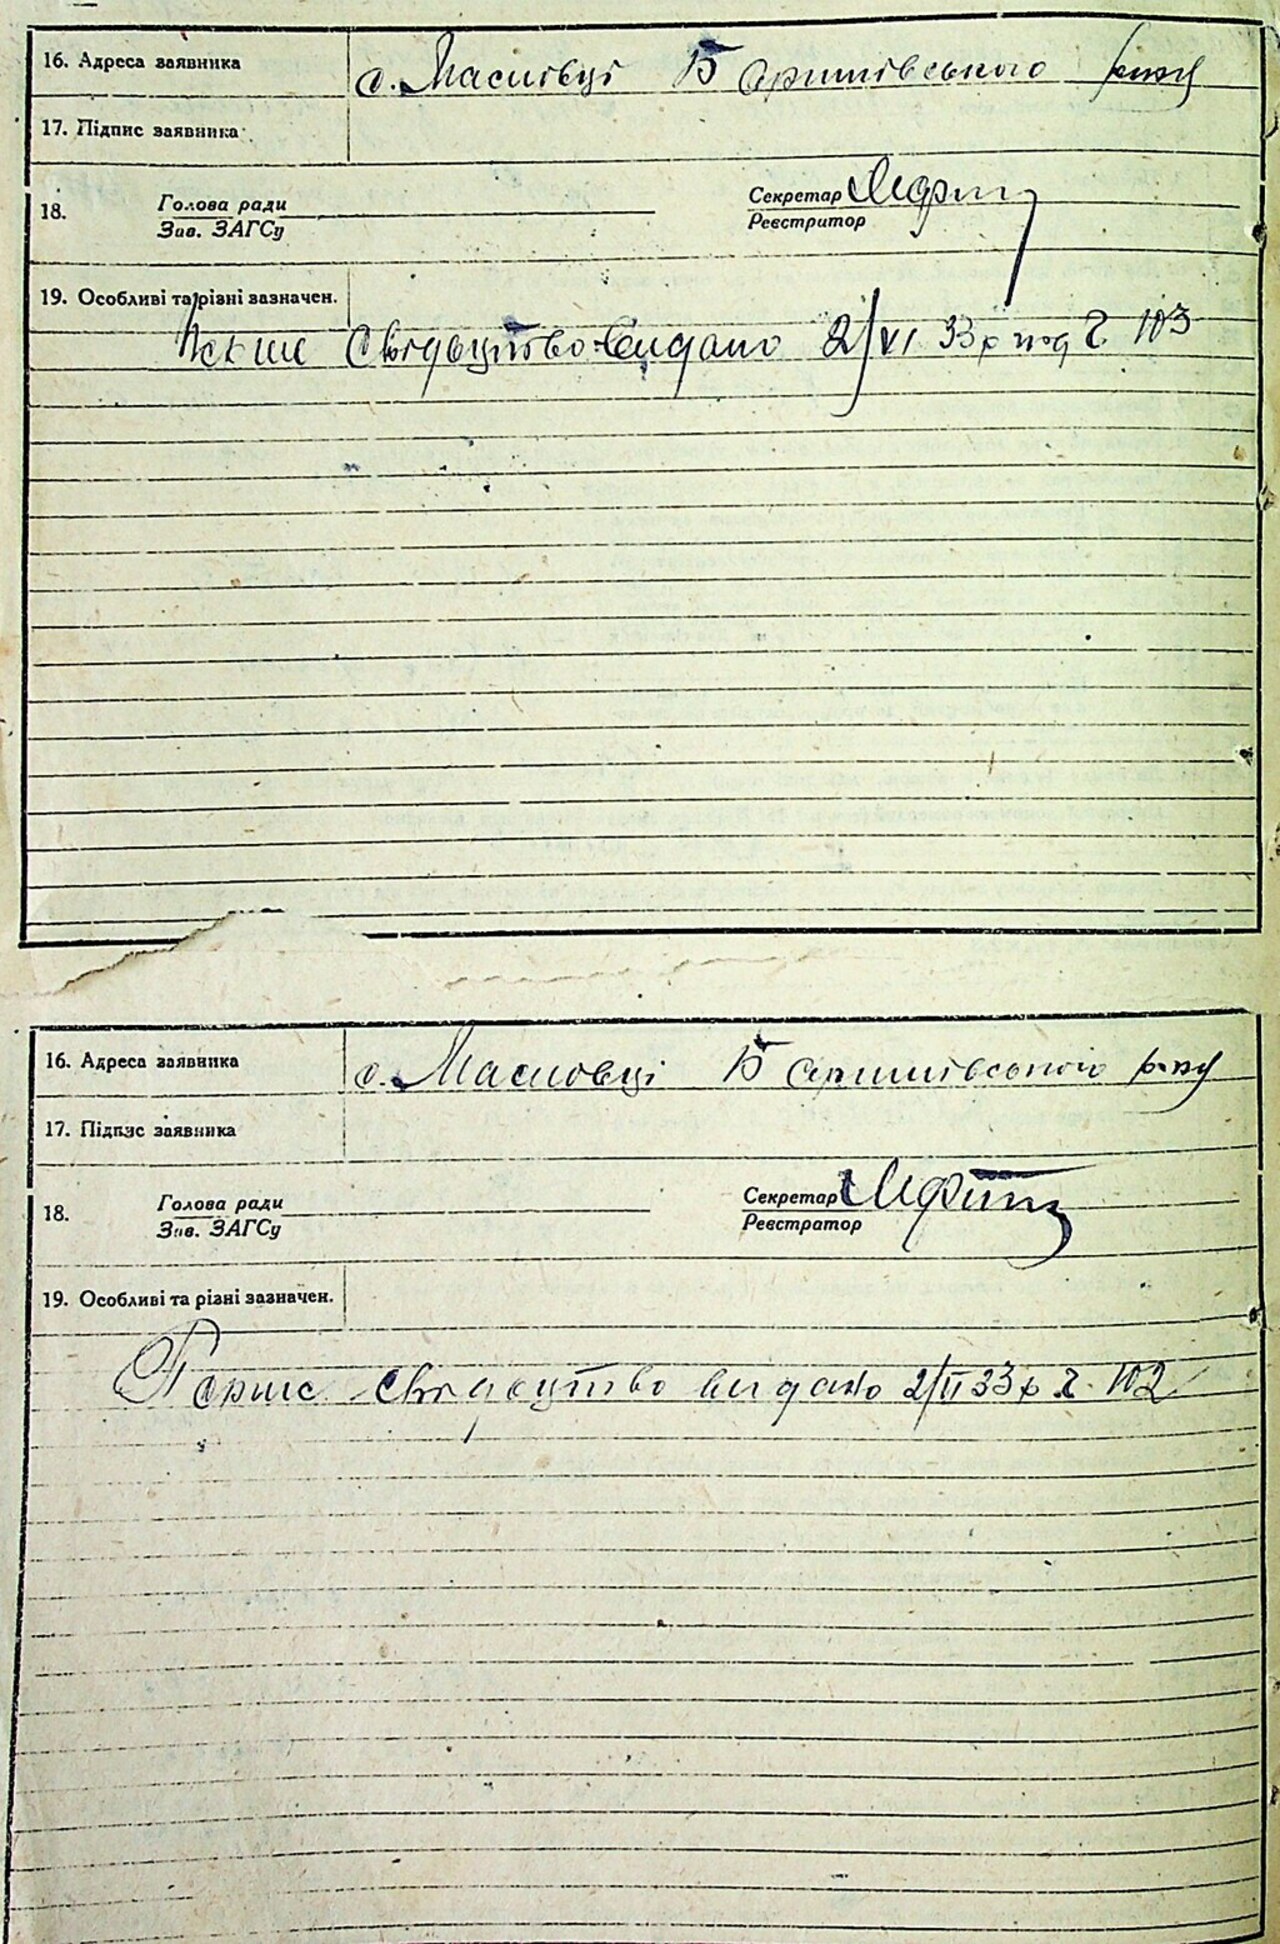 16. Адреса заявника с. Масківці Баришівського р-ну
17. Підпис заявника
18. Голова ради Секретар
Зав. ЗАГСу Реєстратор
19. Особливі та різні зазначен.
Перше Свідоцтво видано 2/VI 33 р під Ч 103
16. Адреса заявника с. Масківці Баришівського р-ну
17. Підпис заявника
18. Голова ради Секретар
Зав. ЗАГСу Реєстратор
19. Особливі та різні зазначен.
Перше свідоцтво видано 2/VI 33 р Ч. 102